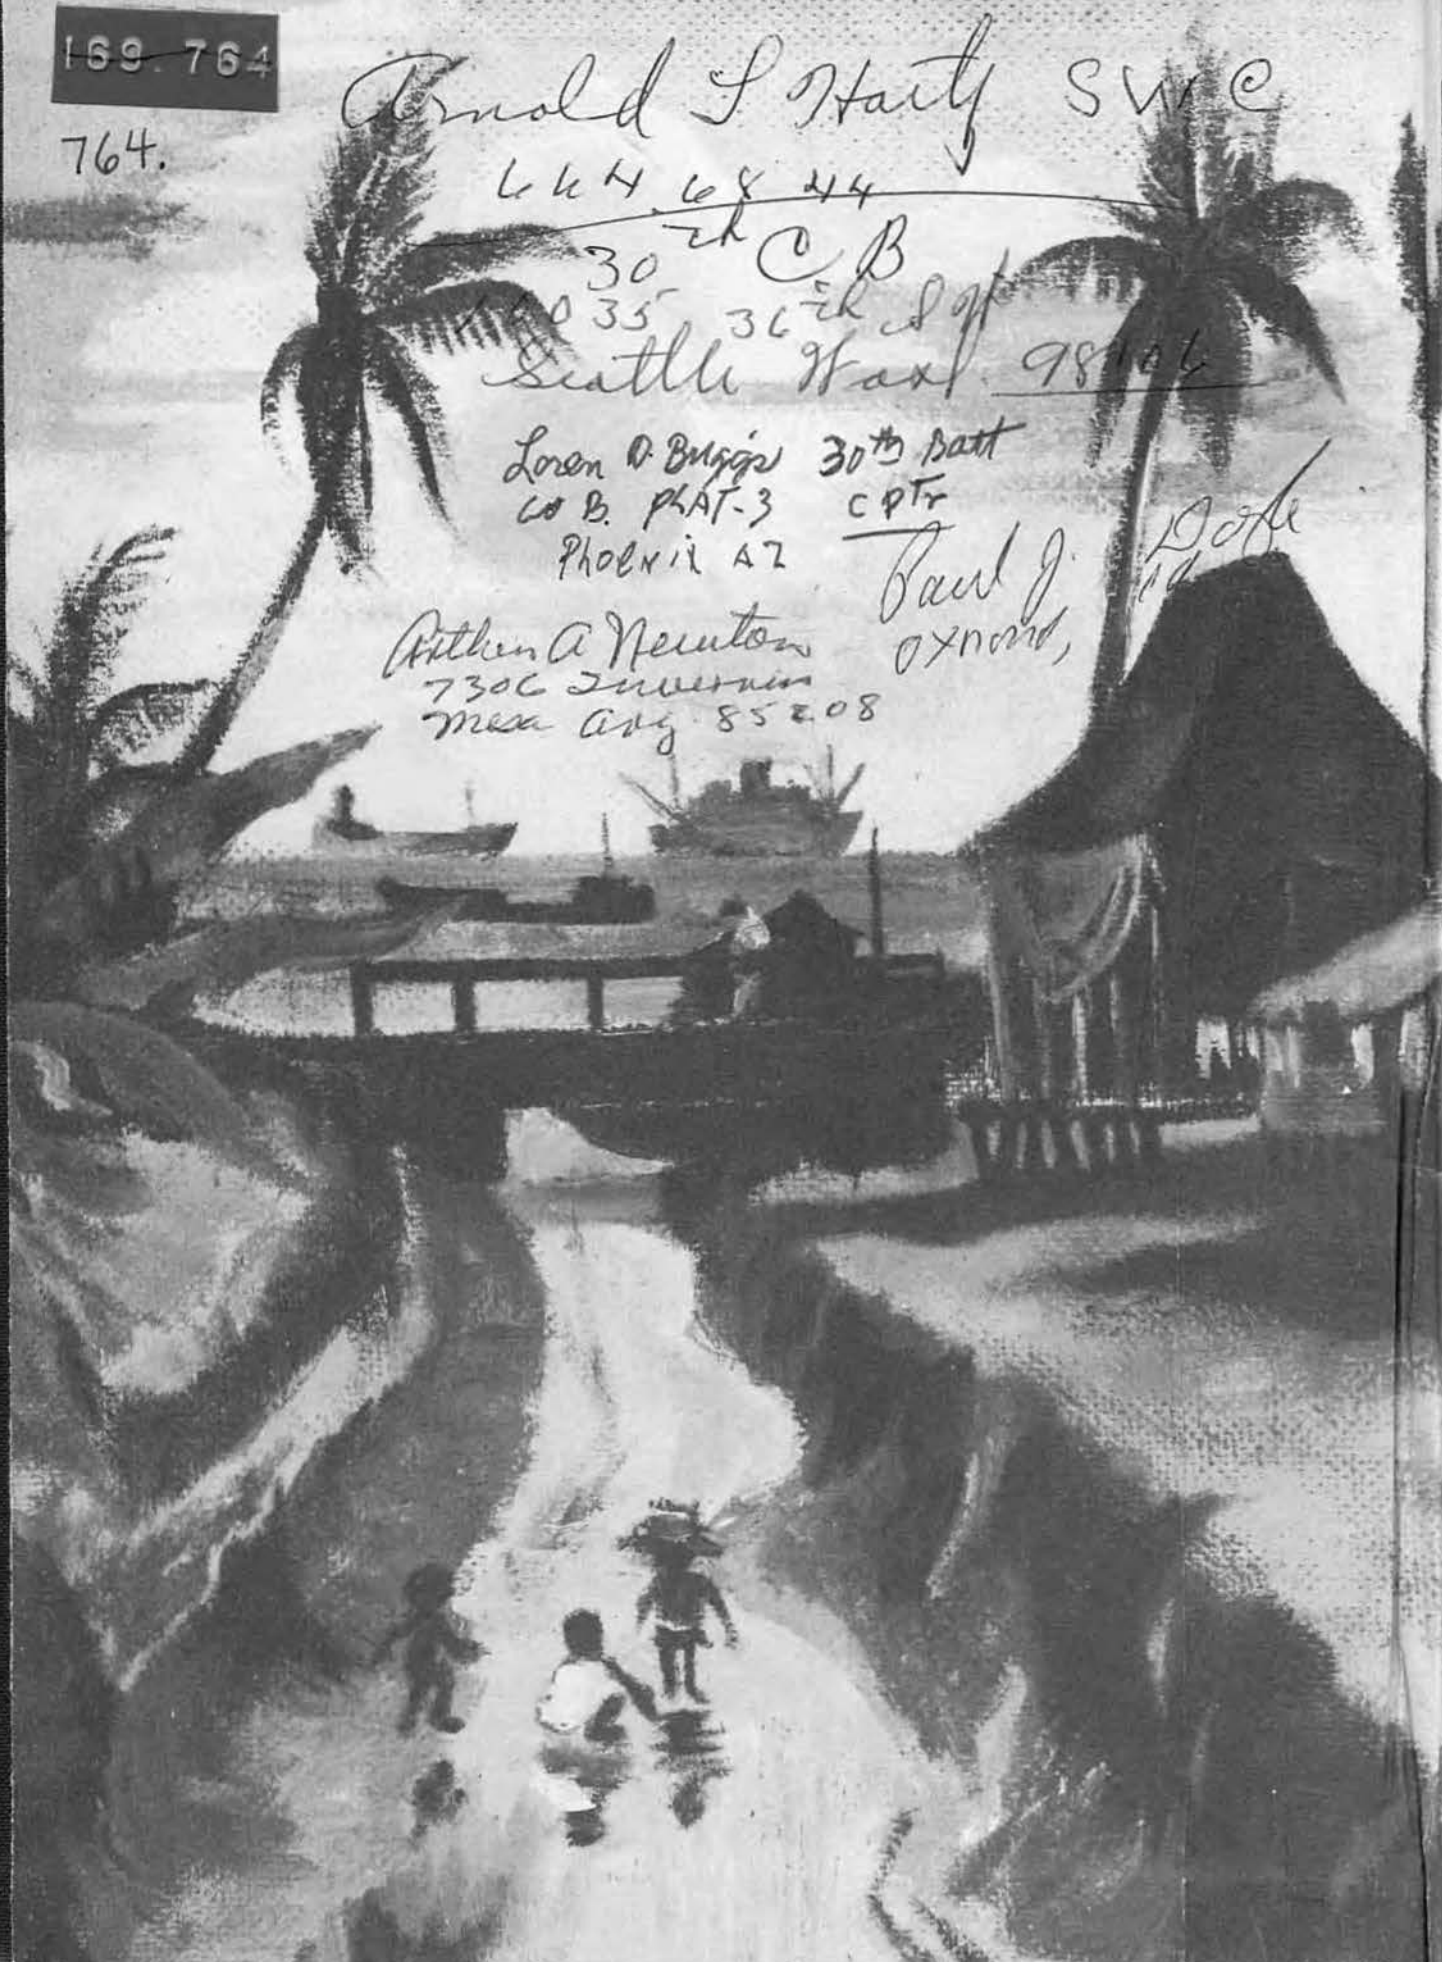 169.764
764.
Arnold L Harty SWC
664.6844
30th CB
35 36th
Seattle Wash. 98106
Loren D. Briggs 30th Batt
Co B. PLAT-3 CPTr
Phoenix AZ
Paul J.
Oxnord,
Arthur A Newton
7306
Mesa Arz 85208